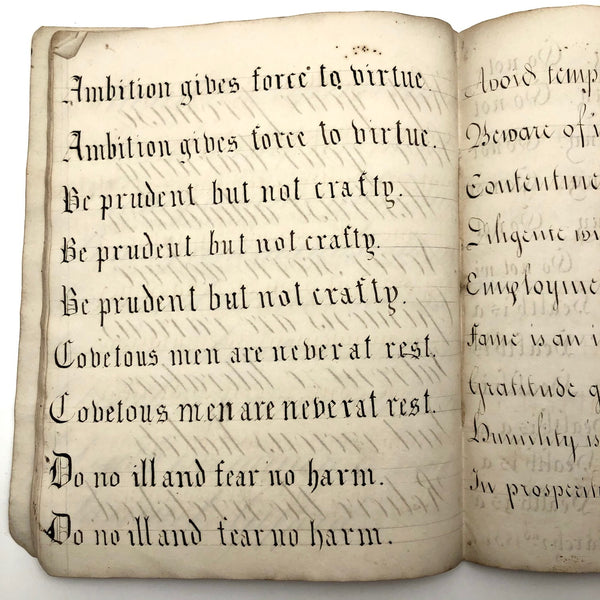 Ambition gives force to virtue.
Ambition gives force to virtue.
Be prudent but not crafty.
Be prudent but not crafty.
Be prudent but not crafty.
Covetous men are never at rest.
Covetous men are never at rest.
Do no ill and fear no harm.
Do no ill and fear no harm.
Avoid temp
Beware of
Contentme
Diligence wi
Employme
Fame is an i
Gratitude g
Humility is
In prosperit